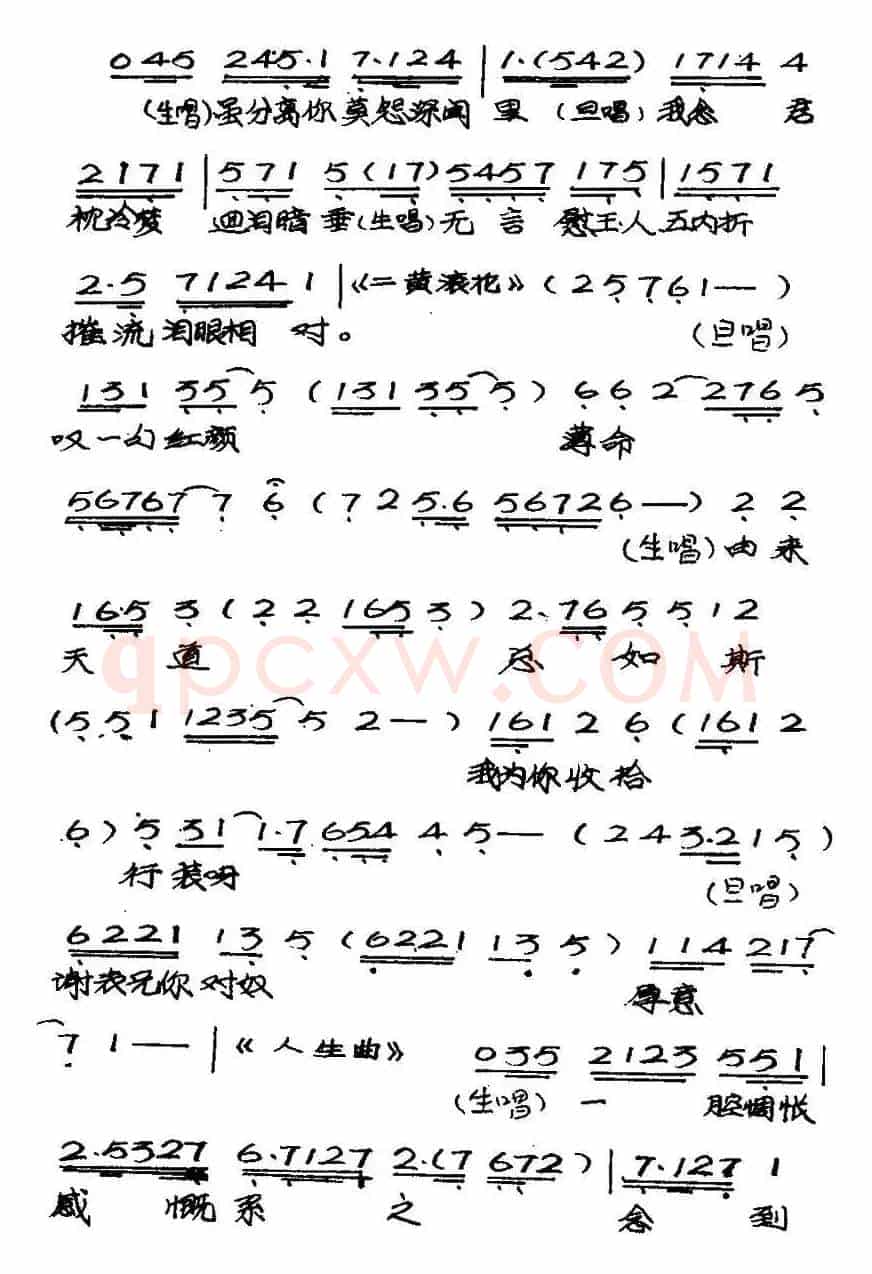 045 245.1 7.124 | 1.(542) 1714 4
(生唱)虽分离你莫怨深闺里 (旦唱)我念君
2171 | 571 5(17) 5457 175 | 1571
枕冷梦 迴泪暗垂(生唱)无言慰玉人五内折
2.5 71241 | 《二黄滚花》(25761——)
摧流泪眼相对。 (旦唱)
131 35 5 (131 35 5) 6 6 2 276 5
叹一句红颜 薄命
56767 7 6 (7 2 5.6 56726—) 2 2
(生唱)由来
16.5 3 (2 2 165 3) 2、76 5 5 1 2
天道 总如斯
qpcxw.COM
(5 5 1 1235 5 2—) 161 2 6 (161 2
我为你收拾
6) 5 31 1.7 654 4 5— (2 4 3.2 1 5)
行装呀 (旦唱)
6221 13 5 (6221 13 5) 114 217
谢表兄你对奴 厚意
7 1—— | 《人生曲》 035 2123 551 |
(生唱) 一 腔惆怅
2.5327 6.7127 2.(7 672) | 7.127 1
感慨系之 念到